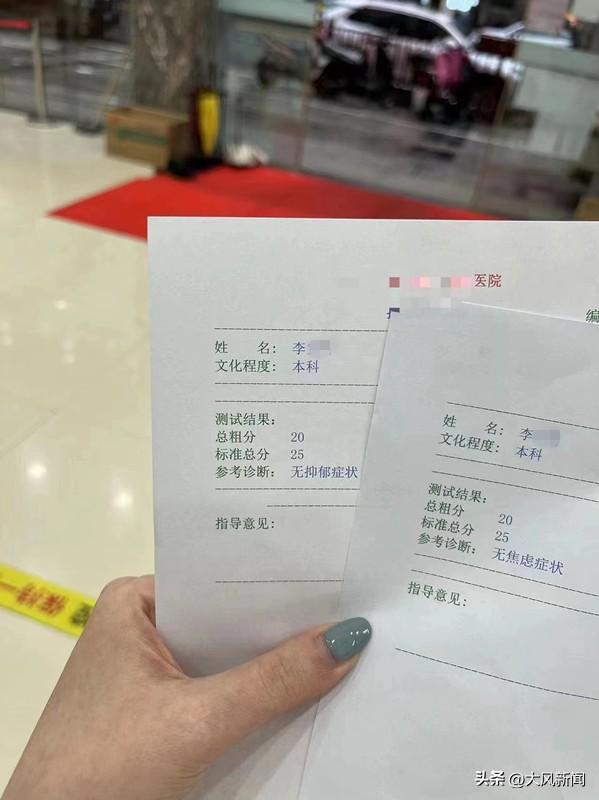 医院
编
姓 名: 李
文化程度: 本科
测试结果:
总粗分 20
标准总分 25
参考诊断: 无抑郁症状
指导意见:
姓 名: 李
文化程度: 本科
测试结果:
总粗分 20
标准总分 25
参考诊断: 无焦虑症状
指导意见:
保持一
头条 @大风新闻